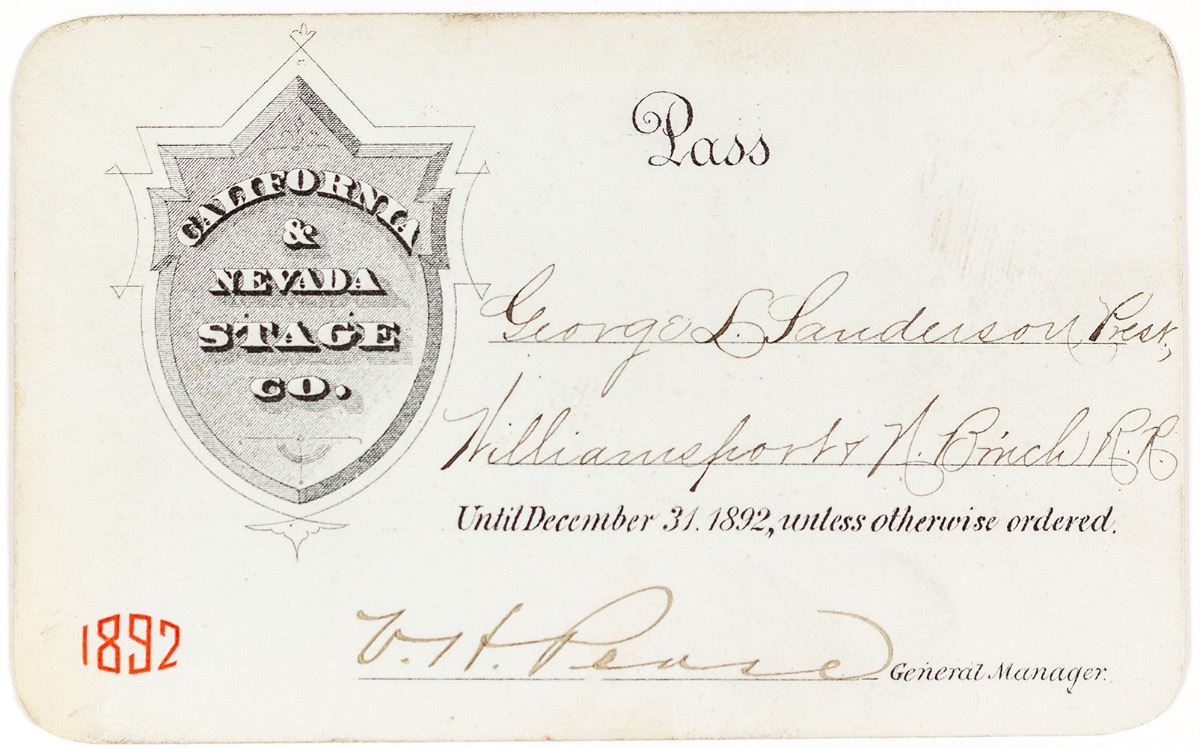 Pass
CALIFORNIA
&
NEVADA
STAGE
CO.
George L. Sanderson Prest.,
Williamsport & N. Brnch R.R.
Until December 31. 1892, unless otherwise ordered.
1892
V. H. Pease General Manager.